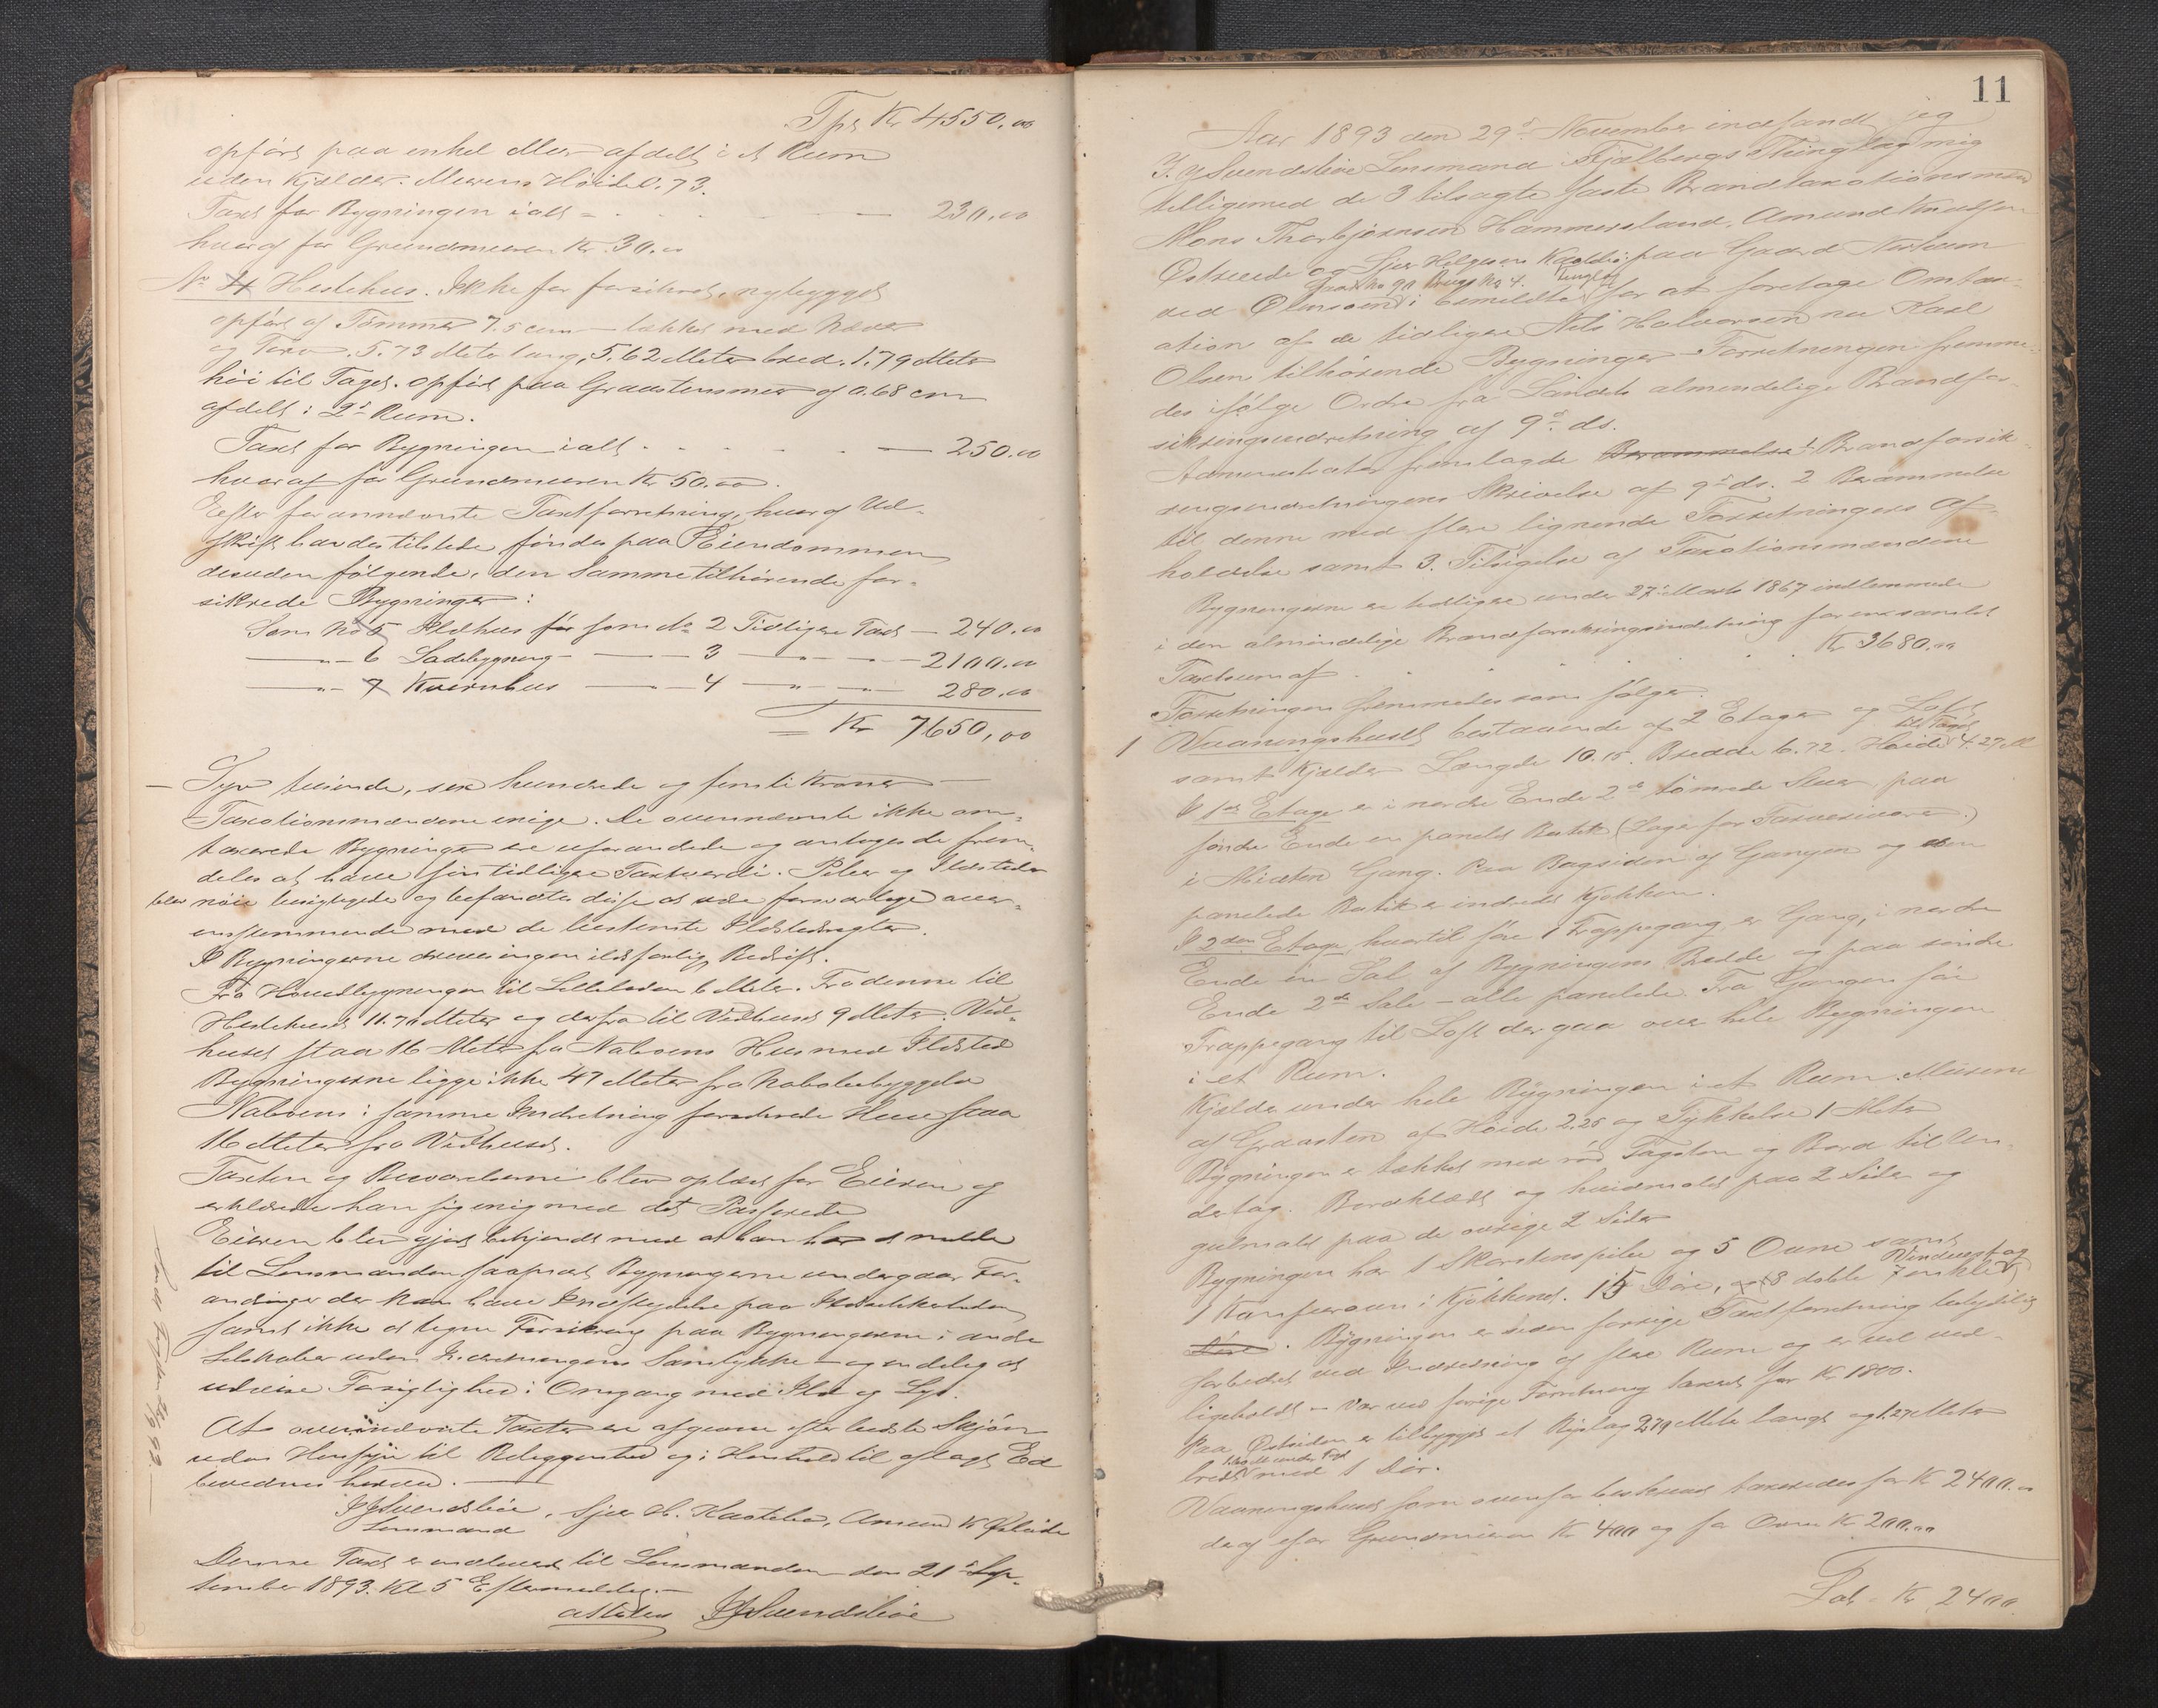 Tpt Kr 4550,00
opført paa enkel Muur afdelt i et Rum
uden Kjælder. Murens Høide 0.73.
Taxt for Bygningen ialt = — 230,00
hvoraf for Grundmuren Kr. 30,00
No 4 Hestehus. Ikke før forsikret, nybygget
opført af Tømmer 7.5 cm — tækket med Næver
og Torv. 5.73 Meter lang, 5.62 Meter bred. 1.79 Meter
høi til Taget. opført paa Graastensmur af 0.68 cm
afdelt i 2de Rum.
Taxt for Bygningen ialt — 250.00
hvoraf for Grundmuren Kr 50.00.
Efter forannævnte Taxtforretning, hvoraf Ud-
skrift havdes tilstede findes paa Eiendommen
desuden følgende, den samme tilhørende for-
sikrede Bygninger:
Som No 5 Ildhus som No 2 Tidligere Taxt — 240.00
— " — 6 Ladebygning — 3 — " — 2100.00
— " — 7 Kværnhus — 4 — " — 280.00
Kr 7650,00
— Syv tusinde, sex hundrede og femti Kroner —
Taxationsmændene enige. De ovennævnte ikke om-
taxerede Bygninger ere uforandrede og antages de frem-
deles at have sin tidligere Taxtværdi. Piber og Ildsteder
blev nøie besigtigede og befandtes disse at være forsvarlige over-
ensstemmende med de bestemte Ildstedsregler.
I Bygningerne drives ingen ildsfarlig Bedrift.
Fra Hovedbygningen til Lilleladen 6 Meter. Fra denne til
Hestehuset 11.70 Meter og derfra til Vedhuset 9 Meter. Ved-
huset staar 16 Meter fra Naboens Hus med Ildsted
Bygningerne ligge ikke 47 Meter fra Nabobebyggelse
Naboens i samme Indretning forsikrede Huse staa
16 Meter fra Vedhuset.
Taxten og Beskrivelserne blev oplæst for Eieren og
erklærede han sig enig med det Passerede
Eieren blev gjort bekjendt med at han har at melde
til Lensmanden saasnart Bygningerne undergaar For-
andringer der kan have Indflydelse paa Ildsikkerheden
samt ikke at tegne Forsikring paa Bygningerne i andre
Selskaber uden Indretningens Samtykke — og endelig at
udvise Forsigtighed i Omgang med Ild og Lys.
At ovennævnte Taxter ere afgivne efter bedste Skjøn
uden Hensyn til Beliggenhed og i Henhold til aflagt Ed
bevidnes herved. —
Svendsbøe, Sjur H. Kaateba, Amund K Østvide
Lensmand
Denne Taxt er indleveret til Lensmanden den 21de Sep-
tember 1893. Kl 5 Eftermiddag. —
attestes Svendsbøe
11
Aar 1893 den 29de November indfandt jeg
Svendsbøe Lensmand i Fjelbergs Thinglag mig
tilligemed de 3 tilsagte faste Brandtaxationsmænd
Mons Thorbjørnsen Hammersland, Amund Knudsen
Østvide og Sjur Helgesen paa Gaard
Gaards No 90 Brugs No 4. Tinglag
ved Ølensøen i bemeldte for at foretage Omtax-
ation af de tidligere Nils Halvorsen nu Karl
Olsen tilhørende Bygninger — Forretningen fremme-
des ifølge Ordre fra Landets almindelige Brandfor-
sikringsindretning af 9de ds.
Administrator fremlagde Berammelse 1. Brandforsik-
ringsindretningens Skrivelse af 9de ds. 2 Berammelse
til denne med flere lignende Forretningers Af-
holdelse samt 3. Tilsigelse af Taxationsmændene
Bygningerne er tidligere under 27de Marts 1867 indlemmede
i den almindelige Brandforsikringsindretning for en samlet
Taxtsum af Kr 3680.00
Forretningen fremmedes som følger.
1 Vaaningshuset bestaaende af 2 Etager og Loft
til Taget
samt Kjælder Længde 10.15. Bredde 6.72. Høide 4.27 M
I 1ste Etage er i nordre Ende 2de tømrede Stuer, paa
søndre Ende en panelet Butik (Lage for Farverivarer.)
i Midten Gang. Paa Bagsiden af Gangen og den
panelede Butik er indredet Kjøkken.
I 2den Etage, hvortil fører 1 Trappegang, er Gang, i nordre
Ende en Sal af Bygningens Bredde og paa søndre
Ende 2de Sale — alle panelede. Fra Gangen fører
Trappegang til Loft der gaar over hele Bygningen
i et Rum.
Kjælder under hele Bygningen i et Rum. Murene
af Graasten af Høide 2.25 og Tykkelse 1 Meter
Bygningen er tækket med rød Tagsten og Bord til Un-
derlag. Bordklædt og hvidmalet paa 2 Sider og
gulmalt paa de øvrige 2 Sider
Bygningen har 1 Skorstenspibe og 5 Ovne samt
Vinduer og
1 Komfurovn i Kjøkkenet. 15 Døre, 8 doble 7 enkle
Døre. Bygningen er siden forrige Taxtforretning betydelig
forbedret ved Indredning af flere Rum og er vel ved-
ligeholdt — Var ved forrige Forretning taxeret for Kr 1800.
Paa Østsiden er tilbygget et Bislag 2.79 Meter langt og 1.27 Meter
bredt med 1 Dør.
Vaaningshuset som ovenfor beskrevet taxeredes for Kr 2400.00
deraf for Grundmuren Kr 400 og for Ovne Kr 200.00
Lat. Kr 2400